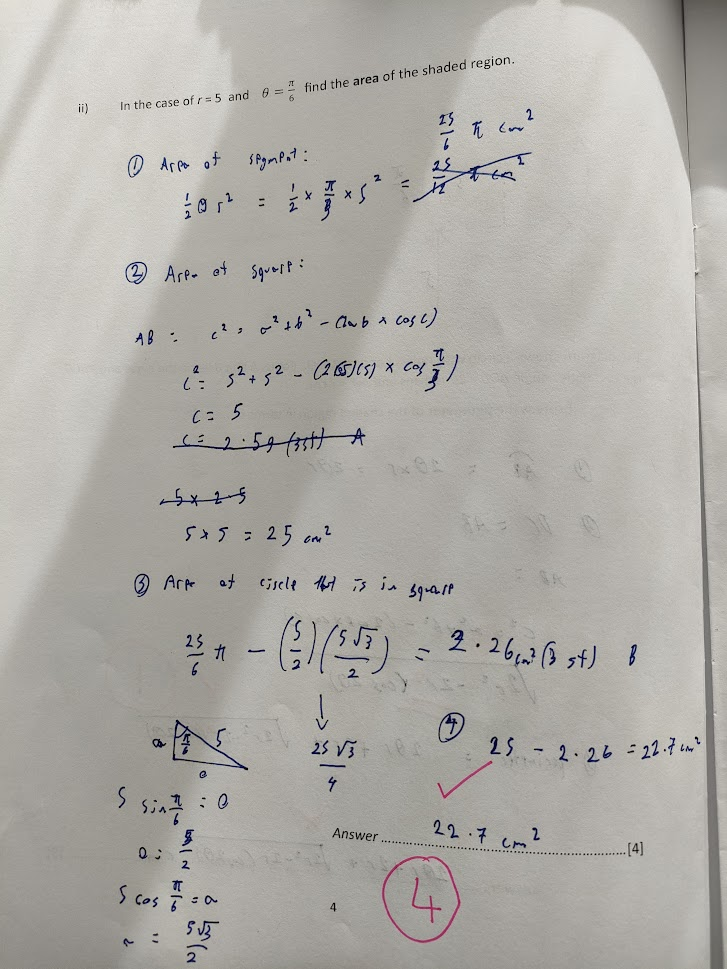 ii) In the case of r = 5 and θ = π/6 find the area of the shaded region.
① Area of segment:
25/6 π cm²
1/2 θ r² = 1/2 × π/3 × 5² = 25/12 π cm²
② Area of square:
AB = c² = a² + b² - (2ab × cos C)
c² = 5² + 5² - (2(5)(5) × cos π/3)
c = 5
c = 2.59 (3sf) A
5 × 2.5
5 × 5 = 25 cm²
③ Area of circle that is in square
25/6 π - (5/2)(5√3/2) = 2.26 cm² (3 sf) B
25√3/4
a π/6 5
o
④ 25 - 2.26 = 22.7 cm²
5 sin π/6 = o
o = 5/2
5 cos π/6 = a
a = 5√3/2
Answer 22.7 cm² [4]
4
4